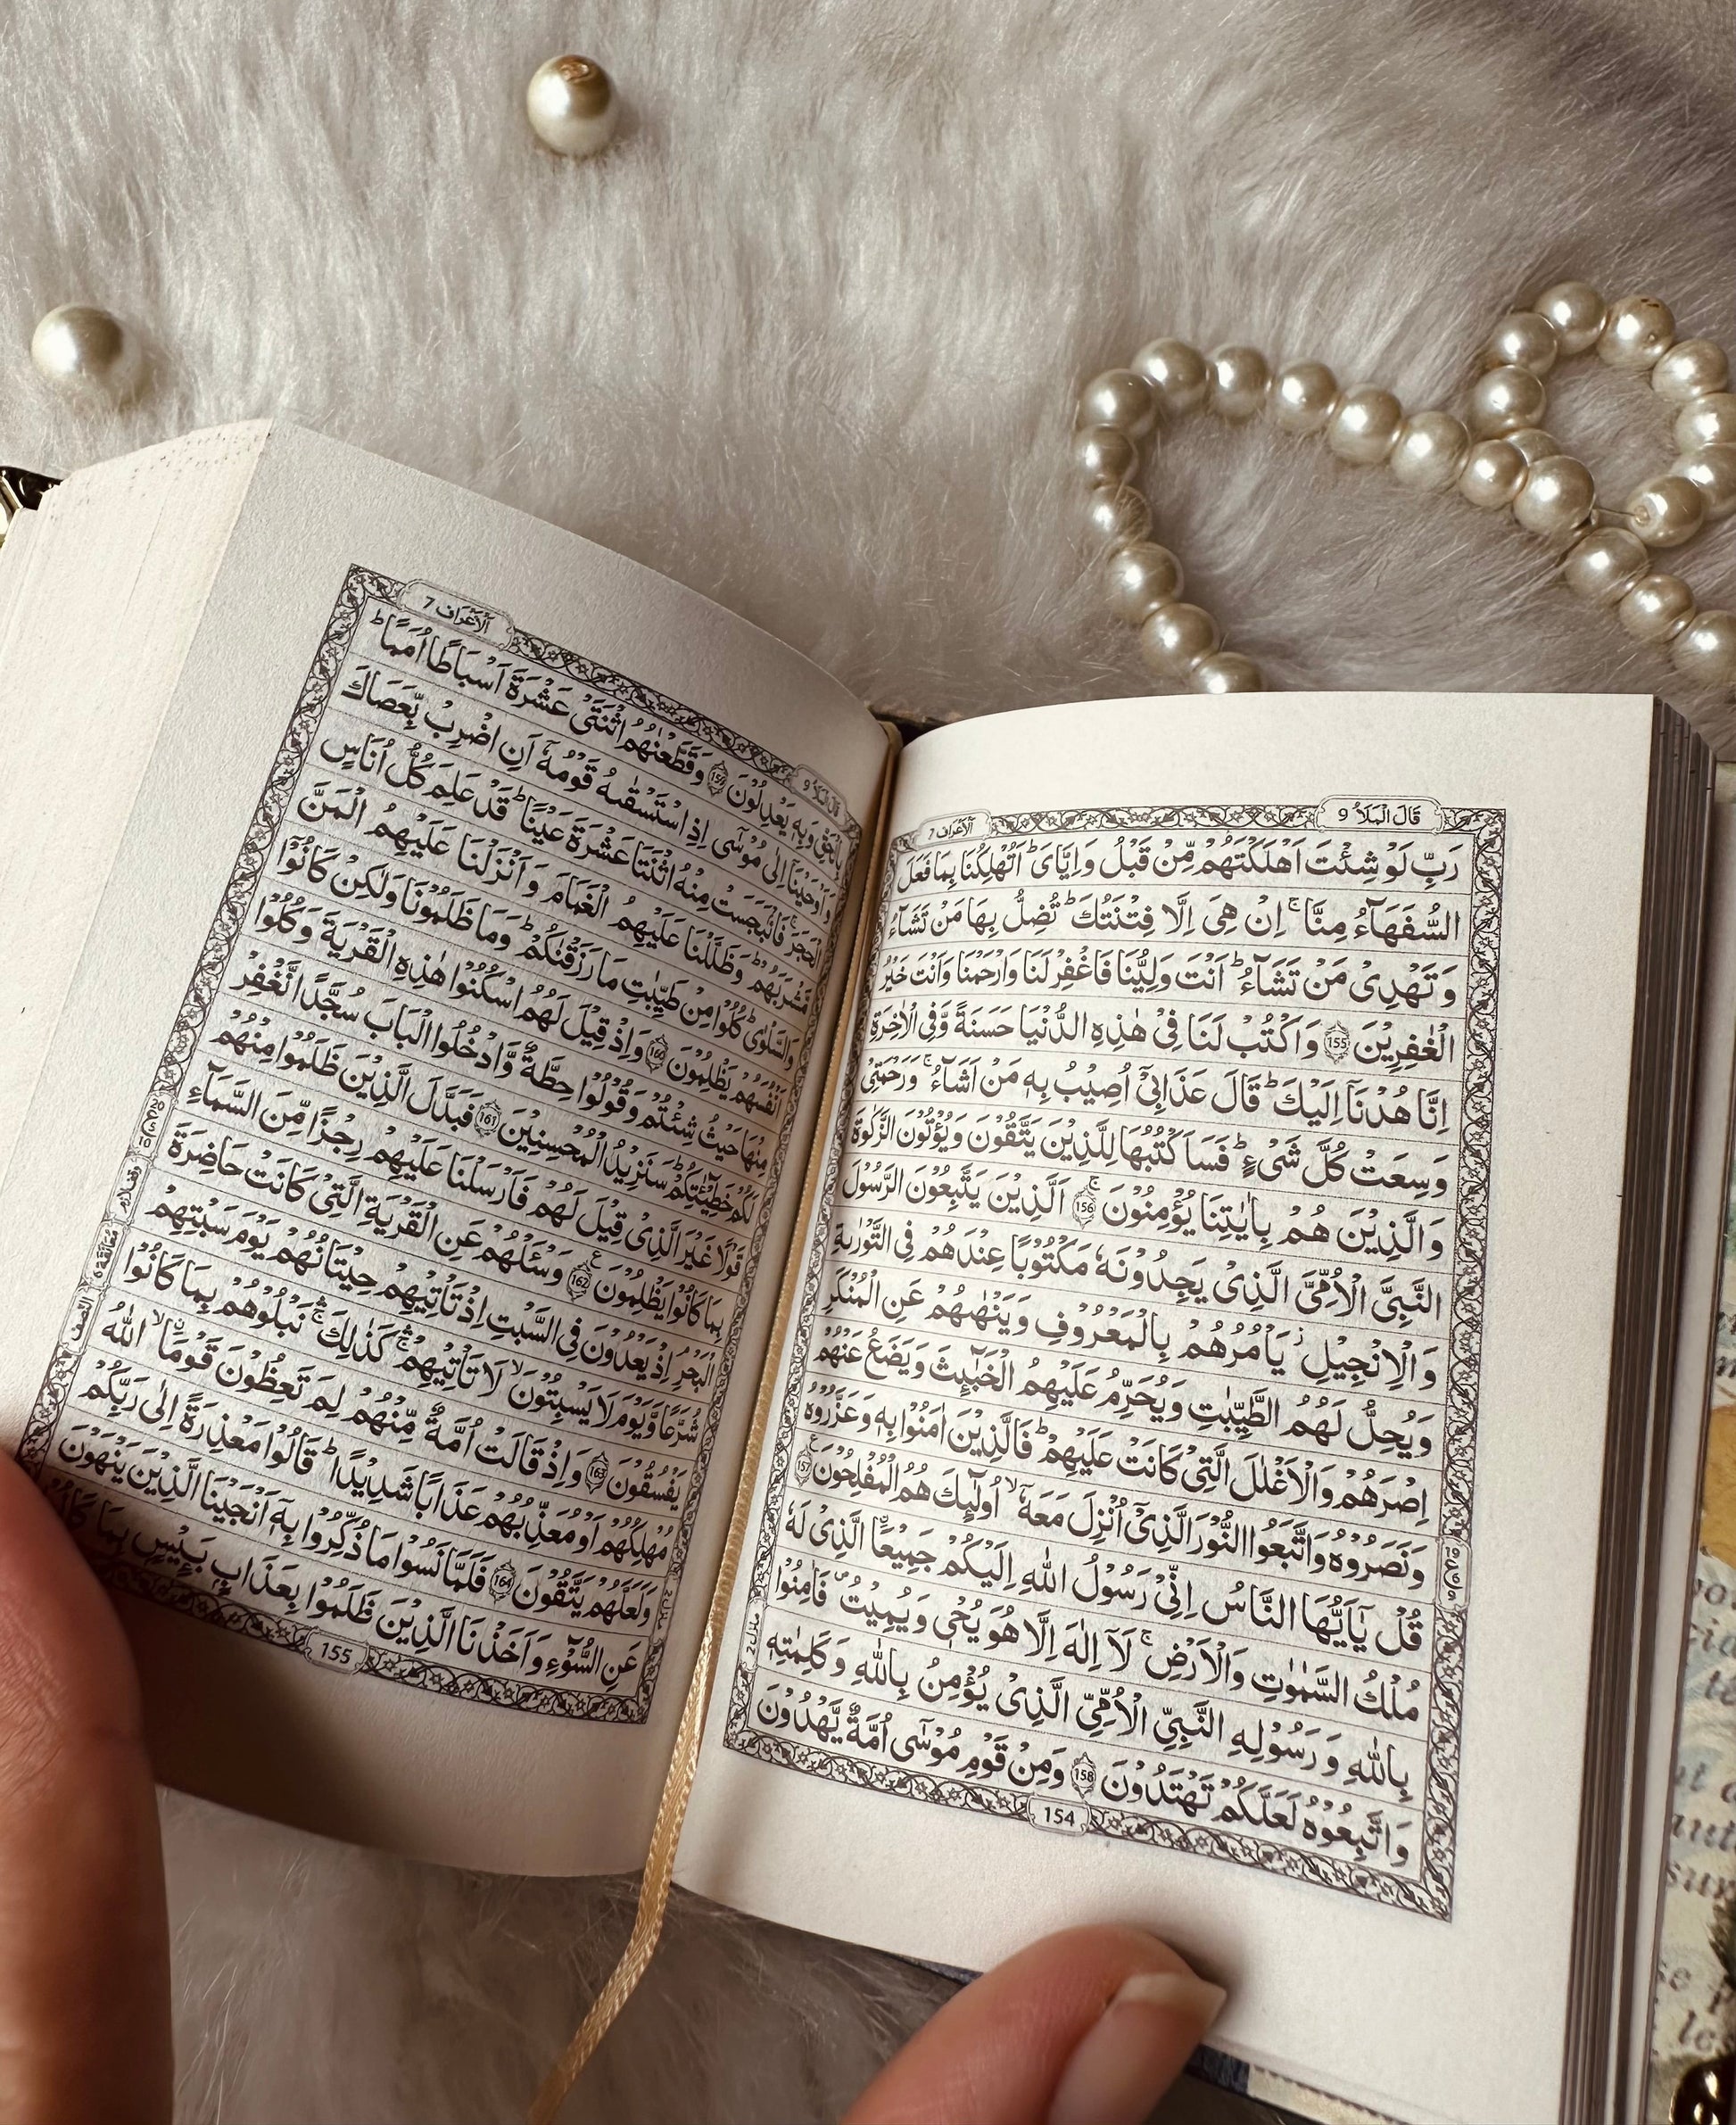 قَالَ الْمَلَاُ 9
اَلْاَعْرَاف 7
رَبِّ لَوْ شِئْتَ اَهْلَكْتَهُمْ مِّنْ قَبْلُ وَاِيَّايَ ؕ اَتُهْلِكُنَا بِمَا فَعَلَ
السُّفَهَآءُ مِنَّا ۚ اِنْ هِيَ اِلَّا فِتْنَتُكَ ؕ تُضِلُّ بِهَا مَنْ تَشَآءُ
وَتَهْدِيْ مَنْ تَشَآءُ ؕ اَنْتَ وَلِيُّنَا فَاغْفِرْ لَنَا وَارْحَمْنَا وَاَنْتَ خَيْرُ
الْغٰفِرِيْنَ 155 وَاكْتُبْ لَنَا فِيْ هٰذِهِ الدُّنْيَا حَسَنَةً وَّفِي الْاٰخِرَةِ
اِنَّا هُدْنَاۤ اِلَيْكَ ؕ قَالَ عَذَابِيْۤ اُصِيْبُ بِهٖ مَنْ اَشَآءُ ۚ وَرَحْمَتِيْ
وَسِعَتْ كُلَّ شَيْءٍ ؕ فَسَاَكْتُبُهَا لِلَّذِيْنَ يَتَّقُوْنَ وَيُؤْتُوْنَ الزَّكٰوةَ
وَالَّذِيْنَ هُمْ بِاٰيٰتِنَا يُؤْمِنُوْنَ ۚ 156 اَلَّذِيْنَ يَتَّبِعُوْنَ الرَّسُوْلَ
النَّبِيَّ الْاُمِّيَّ الَّذِيْ يَجِدُوْنَهٗ مَكْتُوْبًا عِنْدَهُمْ فِي التَّوْرٰىةِ
وَالْاِنْجِيْلِ ؗ يَاْمُرُهُمْ بِالْمَعْرُوْفِ وَيَنْهٰىهُمْ عَنِ الْمُنْكَرِ
وَيُحِلُّ لَهُمُ الطَّيِّبٰتِ وَيُحَرِّمُ عَلَيْهِمُ الْخَبٰٓىِٕثَ وَيَضَعُ عَنْهُمْ
اِصْرَهُمْ وَالْاَغْلٰلَ الَّتِيْ كَانَتْ عَلَيْهِمْ ؕ فَالَّذِيْنَ اٰمَنُوْا بِهٖ وَعَزَّرُوْهُ
وَنَصَرُوْهُ وَاتَّبَعُوا النُّوْرَ الَّذِيْۤ اُنْزِلَ مَعَهٗۤ ۙ اُولٰٓىِٕكَ هُمُ الْمُفْلِحُوْنَ 157
قُلْ يٰۤاَيُّهَا النَّاسُ اِنِّيْ رَسُوْلُ اللّٰهِ اِلَيْكُمْ جَمِيْعَا الَّذِيْ لَهٗ
مُلْكُ السَّمٰوٰتِ وَالْاَرْضِ ۚ لَاۤ اِلٰهَ اِلَّا هُوَ يُحْيٖ وَيُمِيْتُ ۪ فَاٰمِنُوْا
بِاللّٰهِ وَرَسُوْلِهِ النَّبِيِّ الْاُمِّيِّ الَّذِيْ يُؤْمِنُ بِاللّٰهِ وَكَلِمٰتِهٖ
وَاتَّبِعُوْهُ لَعَلَّكُمْ تَهْتَدُوْنَ 158 وَمِنْ قَوْمِ مُوْسٰۤى اُمَّةٌ يَّهْدُوْنَ
منزل 2
154
قَالَ الْمَلَاُ 9
اَلْاَعْرَاف 7
بِالْحَقِّ وَبِهٖ يَعْدِلُوْنَ 159 وَقَطَّعْنٰهُمُ اثْنَتَيْ عَشْرَةَ اَسْبَاطًا اُمَمًا ؕ
وَاَوْحَيْنَاۤ اِلٰى مُوْسٰۤى اِذِ اسْتَسْقٰىهُ قَوْمُهٗۤ اَنِ اضْرِبْ بِّعَصَاكَ
الْحَجَرَ ۚ فَانْۢبَجَسَتْ مِنْهُ اثْنَتَا عَشْرَةَ عَيْنًا ؕ قَدْ عَلِمَ كُلُّ اُنَاسٍ
مَّشْرَبَهُمْ ؕ وَظَلَّلْنَا عَلَيْهِمُ الْغَمَامَ وَاَنْزَلْنَا عَلَيْهِمُ الْمَنَّ
وَالسَّلْوٰى ؕ كُلُوْا مِنْ طَيِّبٰتِ مَا رَزَقْنٰكُمْ ؕ وَمَا ظَلَمُوْنَا وَلٰكِنْ كَانُوْۤا
اَنْفُسَهُمْ يَظْلِمُوْنَ 160 وَاِذْ قِيْلَ لَهُمُ اسْكُنُوْا هٰذِهِ الْقَرْيَةَ وَكُلُوْا
مِنْهَا حَيْثُ شِئْتُمْ وَقُوْلُوْا حِطَّةٌ وَّادْخُلُوا الْبَابَ سُجَّدًا نَّغْفِرْ
لَكُمْ خَطِيْٓـٰٔتِكُمْ ؕ سَنَزِيْدُ الْمُحْسِنِيْنَ 161 فَبَدَّلَ الَّذِيْنَ ظَلَمُوْا مِنْهُمْ
قَوْلًا غَيْرَ الَّذِيْ قِيْلَ لَهُمْ فَاَرْسَلْنَا عَلَيْهِمْ رِجْزًا مِّنَ السَّمَآءِ
بِمَا كَانُوْا يَظْلِمُوْنَ 162 وَسْـَٔلْهُمْ عَنِ الْقَرْيَةِ الَّتِيْ كَانَتْ حَاضِرَةَ
الْبَحْرِ ۘ اِذْ يَعْدُوْنَ فِي السَّبْتِ اِذْ تَاْتِيْهِمْ حِيْتَانُهُمْ يَوْمَ سَبْتِهِمْ
شُرَّعًا وَّيَوْمَ لَا يَسْبِتُوْنَ ۙ لَا تَاْتِيْهِمْ ۛۚ كَذٰلِكَ ۛۚ نَبْلُوْهُمْ بِمَا كَانُوْا
يَفْسُقُوْنَ 163 وَاِذْ قَالَتْ اُمَّةٌ مِّنْهُمْ لِمَ تَعِظُوْنَ قَوْمَا ۙ اللّٰهُ
مُهْلِكُهُمْ اَوْ مُعَذِّبُهُمْ عَذَابًا شَدِيْدًا ؕ قَالُوْا مَعْذِرَةً اِلٰى رَبِّكُمْ
وَلَعَلَّهُمْ يَتَّقُوْنَ 164 فَلَمَّا نَسُوْا مَا ذُكِّرُوْا بِهٖۤ اَنْجَيْنَا الَّذِيْنَ يَنْهَوْنَ
عَنِ السُّوْٓءِ وَاَخَذْنَا الَّذِيْنَ ظَلَمُوْا بِعَذَابٍۭ بَىِٕيْسٍۭ بِمَا كَانُوْا
وقف لازم
معانقة 6
النصف
155